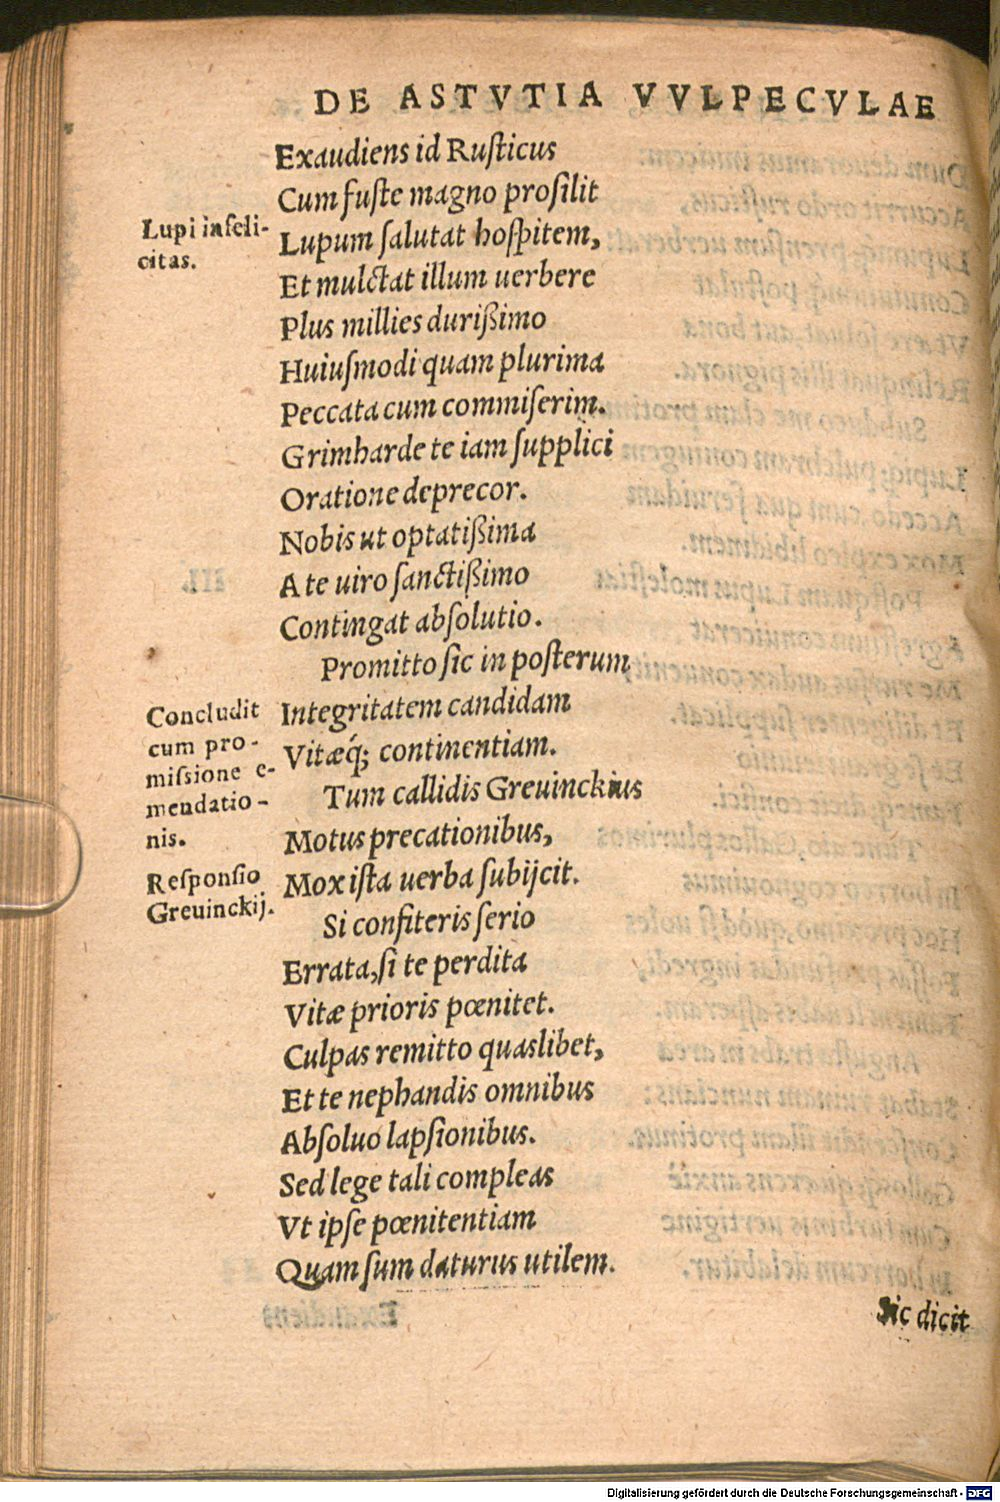 DE ASTVTIA VVLPECVLAE
Exaudiens id Rusticus
Cum fuste magno prosilit
Lupi infeli-
citas.
Lupum salutat hospitem,
Et mulctat illum uerbere
Plus millies durißimo
Huiusmodi quam plurima
Peccata cum commiserim.
Grimharde te iam supplici
Oratione deprecor.
Nobis ut optatißima
A te uiro sanctißimo
Contingat absolutio.
Promitto sic in posterum
Concludit
cum pro-
missione e-
mendatio-
nis.
Integritatem candidam
Vitæq́; continentiam.
Tum callidis Greuinckius
Motus precationibus,
Responsio
Greuinckij.
Mox ista uerba subijcit.
Si confiteris serio
Errata, si te perdita
Vitæ prioris pœnitet.
Culpas remitto quaslibet,
Et te nephandis omnibus
Absoluo lapsionibus.
Sed lege tali compleas
Vt ipse pœnitentiam
Quam sum daturus utilem.
Sic dicit
Digitalisierung gefördert durch die Deutsche Forschungsgemeinschaft - DFG